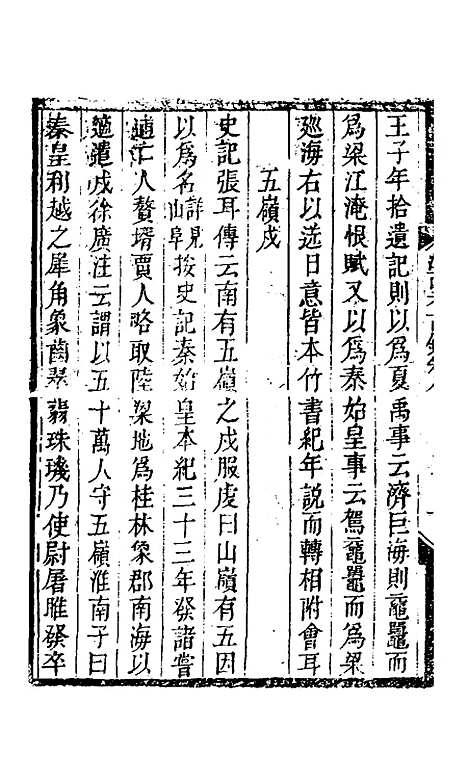 王子年拾遺記則以為夏禹事云濟巨海則黿鼉而
為梁江淹恨賦又以為秦始皇事云駕黿鼉而為梁
廵海右以送日意皆本竹書紀年説而轉相附會耳
五嶺戍
史記張耳傳云南有五嶺之戍服虔曰山嶺有五因
以為名詳見山阜按史記秦始皇本紀三十三年發諸嘗
逋亡人贅壻賈人略取陸梁地為桂林象郡南海以
適遣戍徐廣注云謂以五十萬人守五嶺淮南子曰
秦皇利越之犀角象齒翠翡珠璣乃使尉屠睢發卒